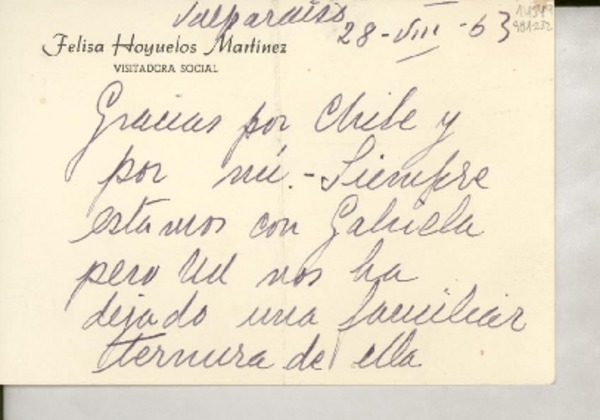 Valparaíso
28-VIII-63
Felisa Hoyuelos Martínez
VISITADORA SOCIAL
Gracias por Chile y
por mí.- Siempre
estamos con Gabriela
pero Ud nos ha
dejado una familiar
ternura de ella